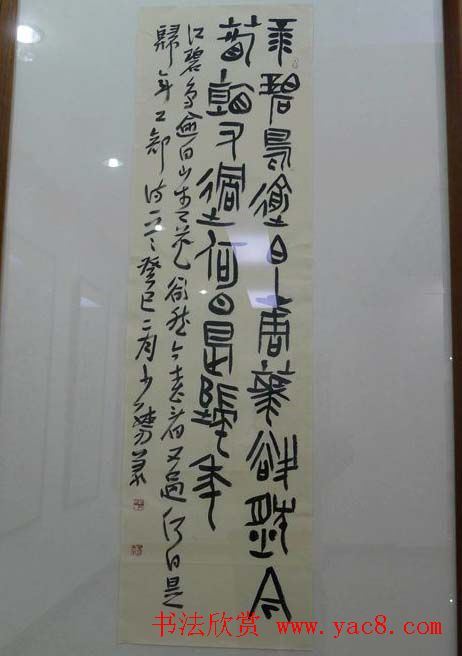 江碧鳥逾白山青華欲然今
春看又過何日是歸年
江碧鳥逾白山青花欲然今春看又過何日是
歸年工部詩癸巳二月少
书法欣赏 www.yac8.com